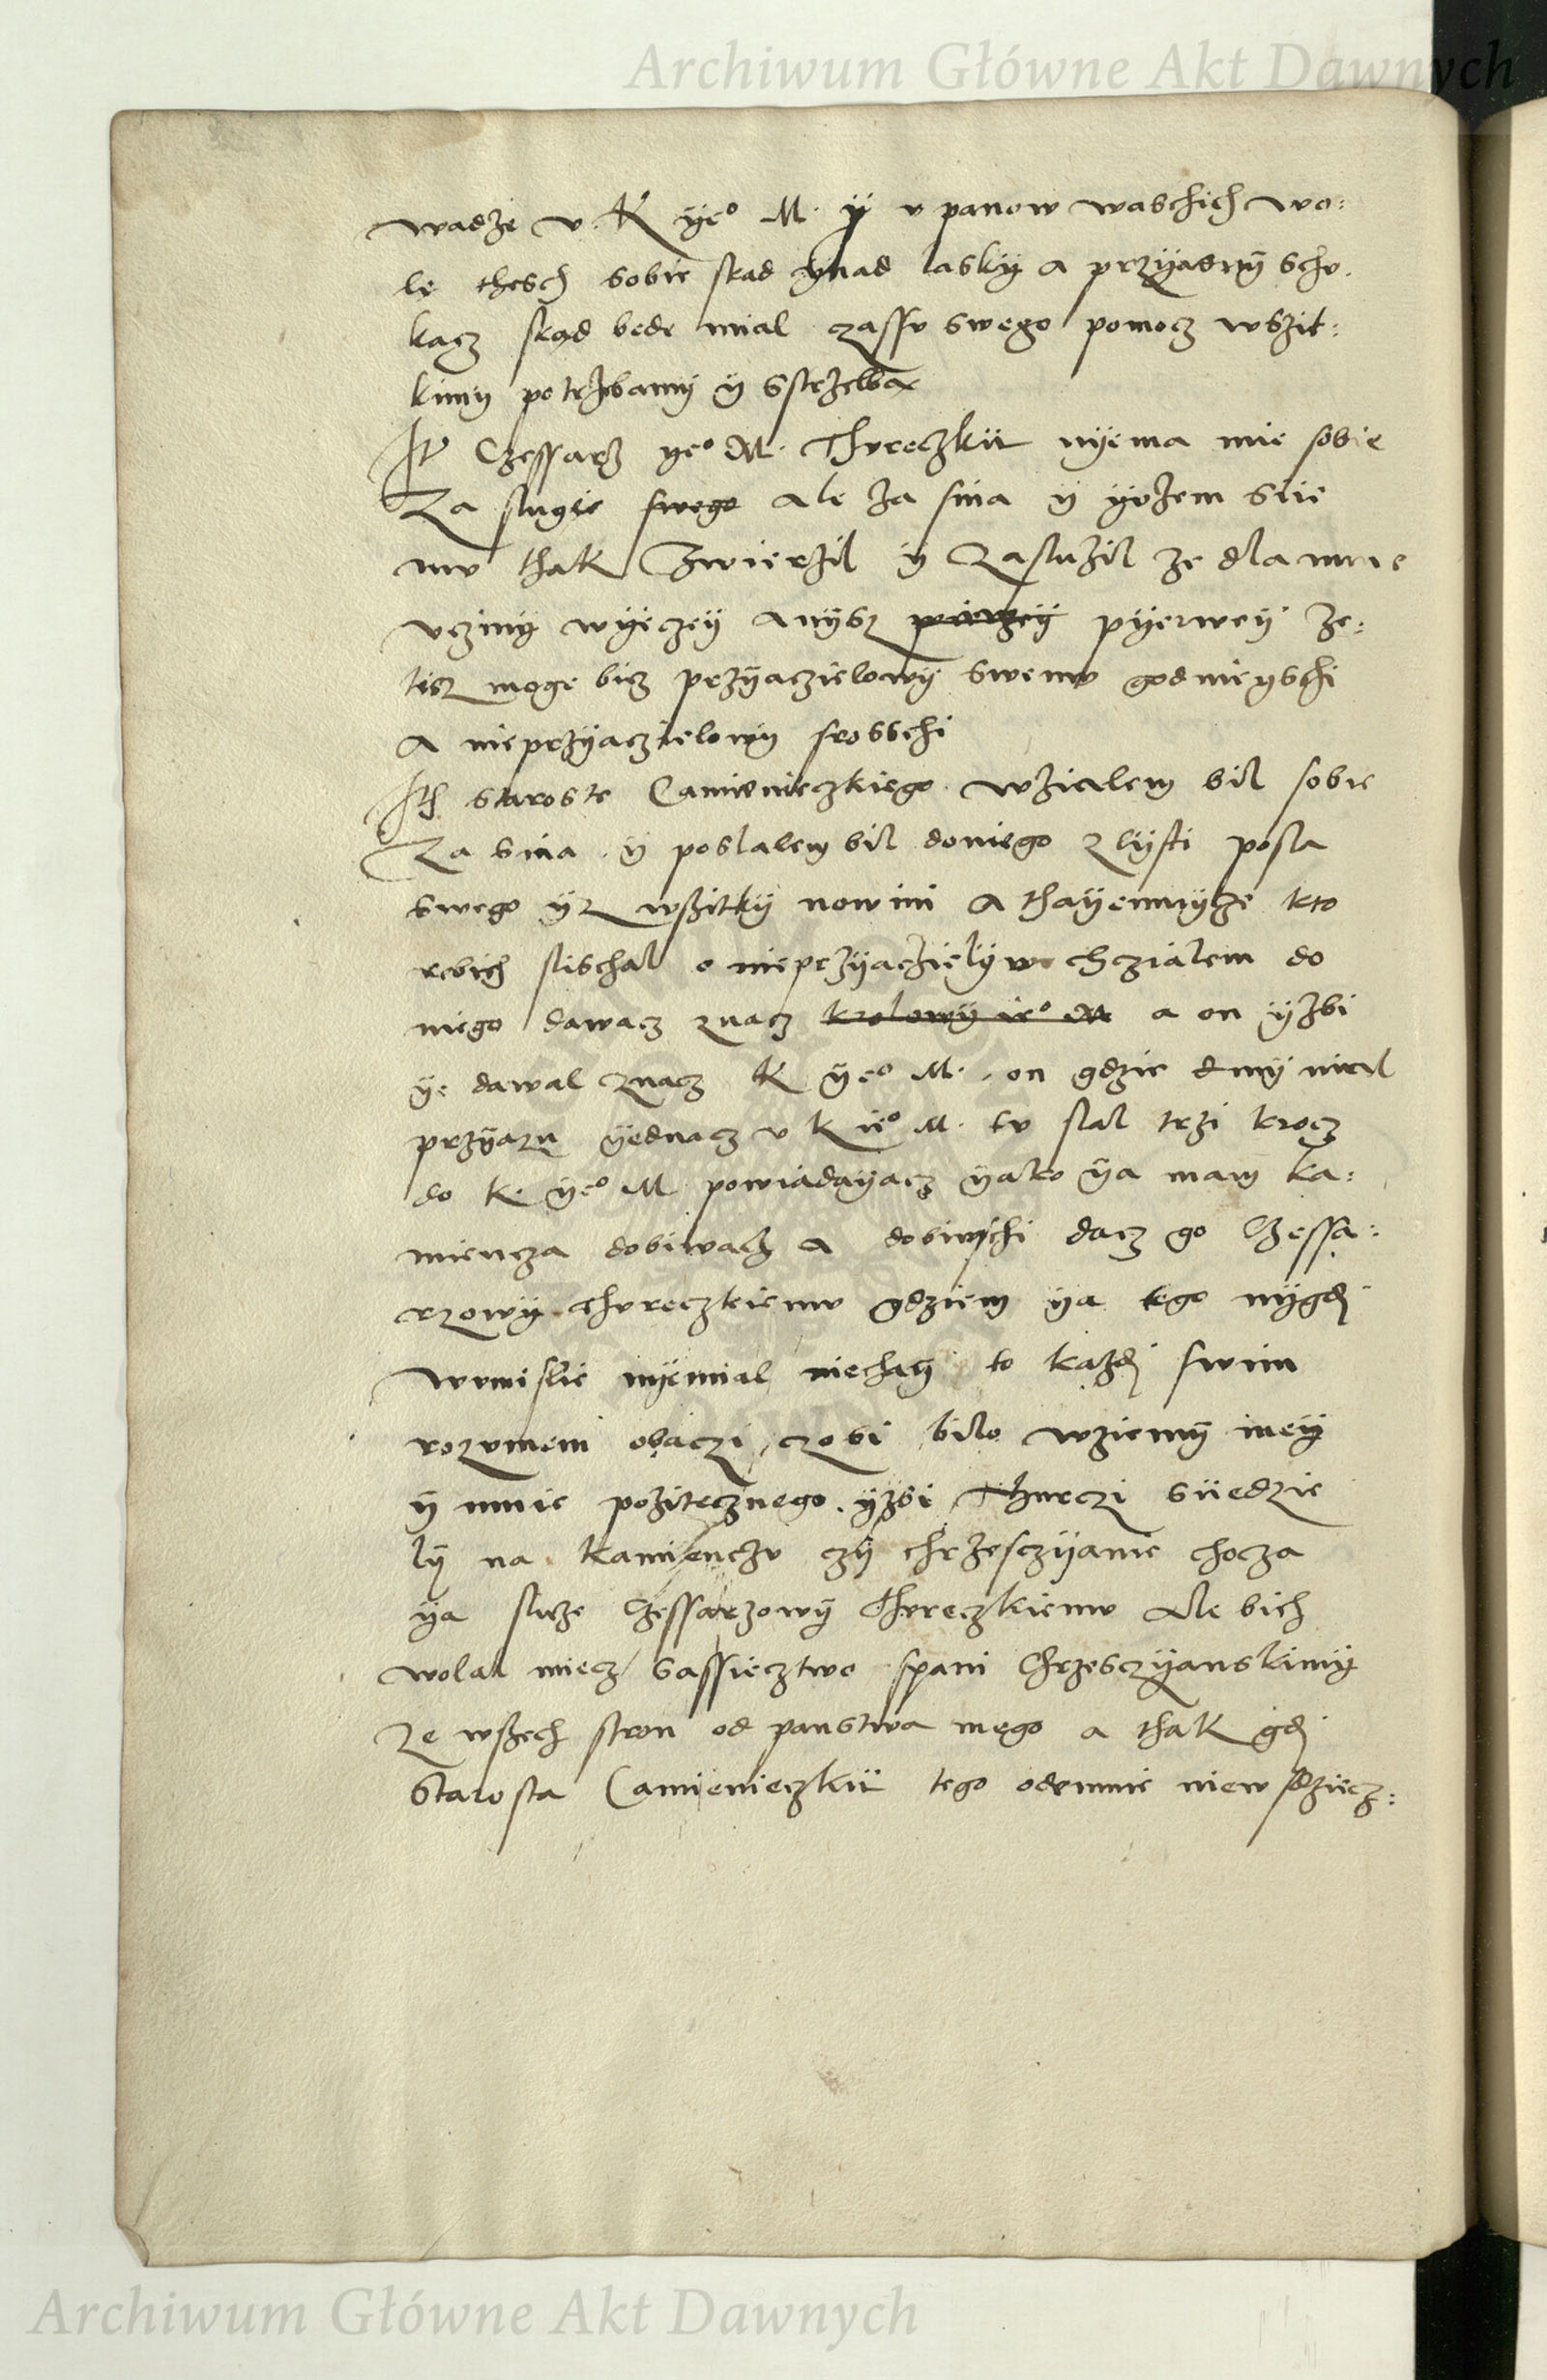 Archiwum Główne Akt Dawnych
wadze v K ye° M. y v panow waschich wo:
le thesch sobie skad ynad lasky a przyasny schu.
kacz skąd bede mial czassv swego pomocz wszit:
kimy potrzebamy y sstrzelba
Itē Czessarz ye° M. Thvreczkii nyema mie sobie
Za slugie swego ale za sina y yvzem siie
mv thak zwierzil y zasluzil ze dla mnie
vczyny wyeczey anysz pierzey pyerwey ze:
tesz moge bicz przyaczielowy swemv godnieyschi
a nieprzyaczielowy srosschi
Itē staroste Camienieczkiego wzialem bil sobie
Za sina y poslalem bil doniego z lysti posla
swego yz wszitky nowini a thayemnycze kto
rebich slischal o nieprzyaczielyw chczialem do
niego dawacz znacz krolowy ie° M a on yzbi
ye dawal znacz K ye° M. on gdzie dmy mial
przyazn yednacz v K ie° M. tv slal trzi krocz
do K. ye° M powiadayacz yako ya mam ka:
miencza dobiwacz a dobiwschi dacz go Czessa:
rzowy Thvreczkiemv gdziem ya tego nygdi
wvmislie nyemial niechay to kazdi swim
rozvmem obaczi czobi bilo wziemy mey
y mnie pozitecznego yzbi Thurczi siiedzie
ly na kamienczv czy chrzesczyanie chocza
ya sluze Czessarzowy Thvreczkiemv Ale bich
wolal miecz sassiecztwo spani Chrzesczyanskimy
ze wszech stron od panstwa mego a thak gdi
Starosta Camienieczkii tego odemnie niew dziecz:
Archiwum Główne Akt Dawnych